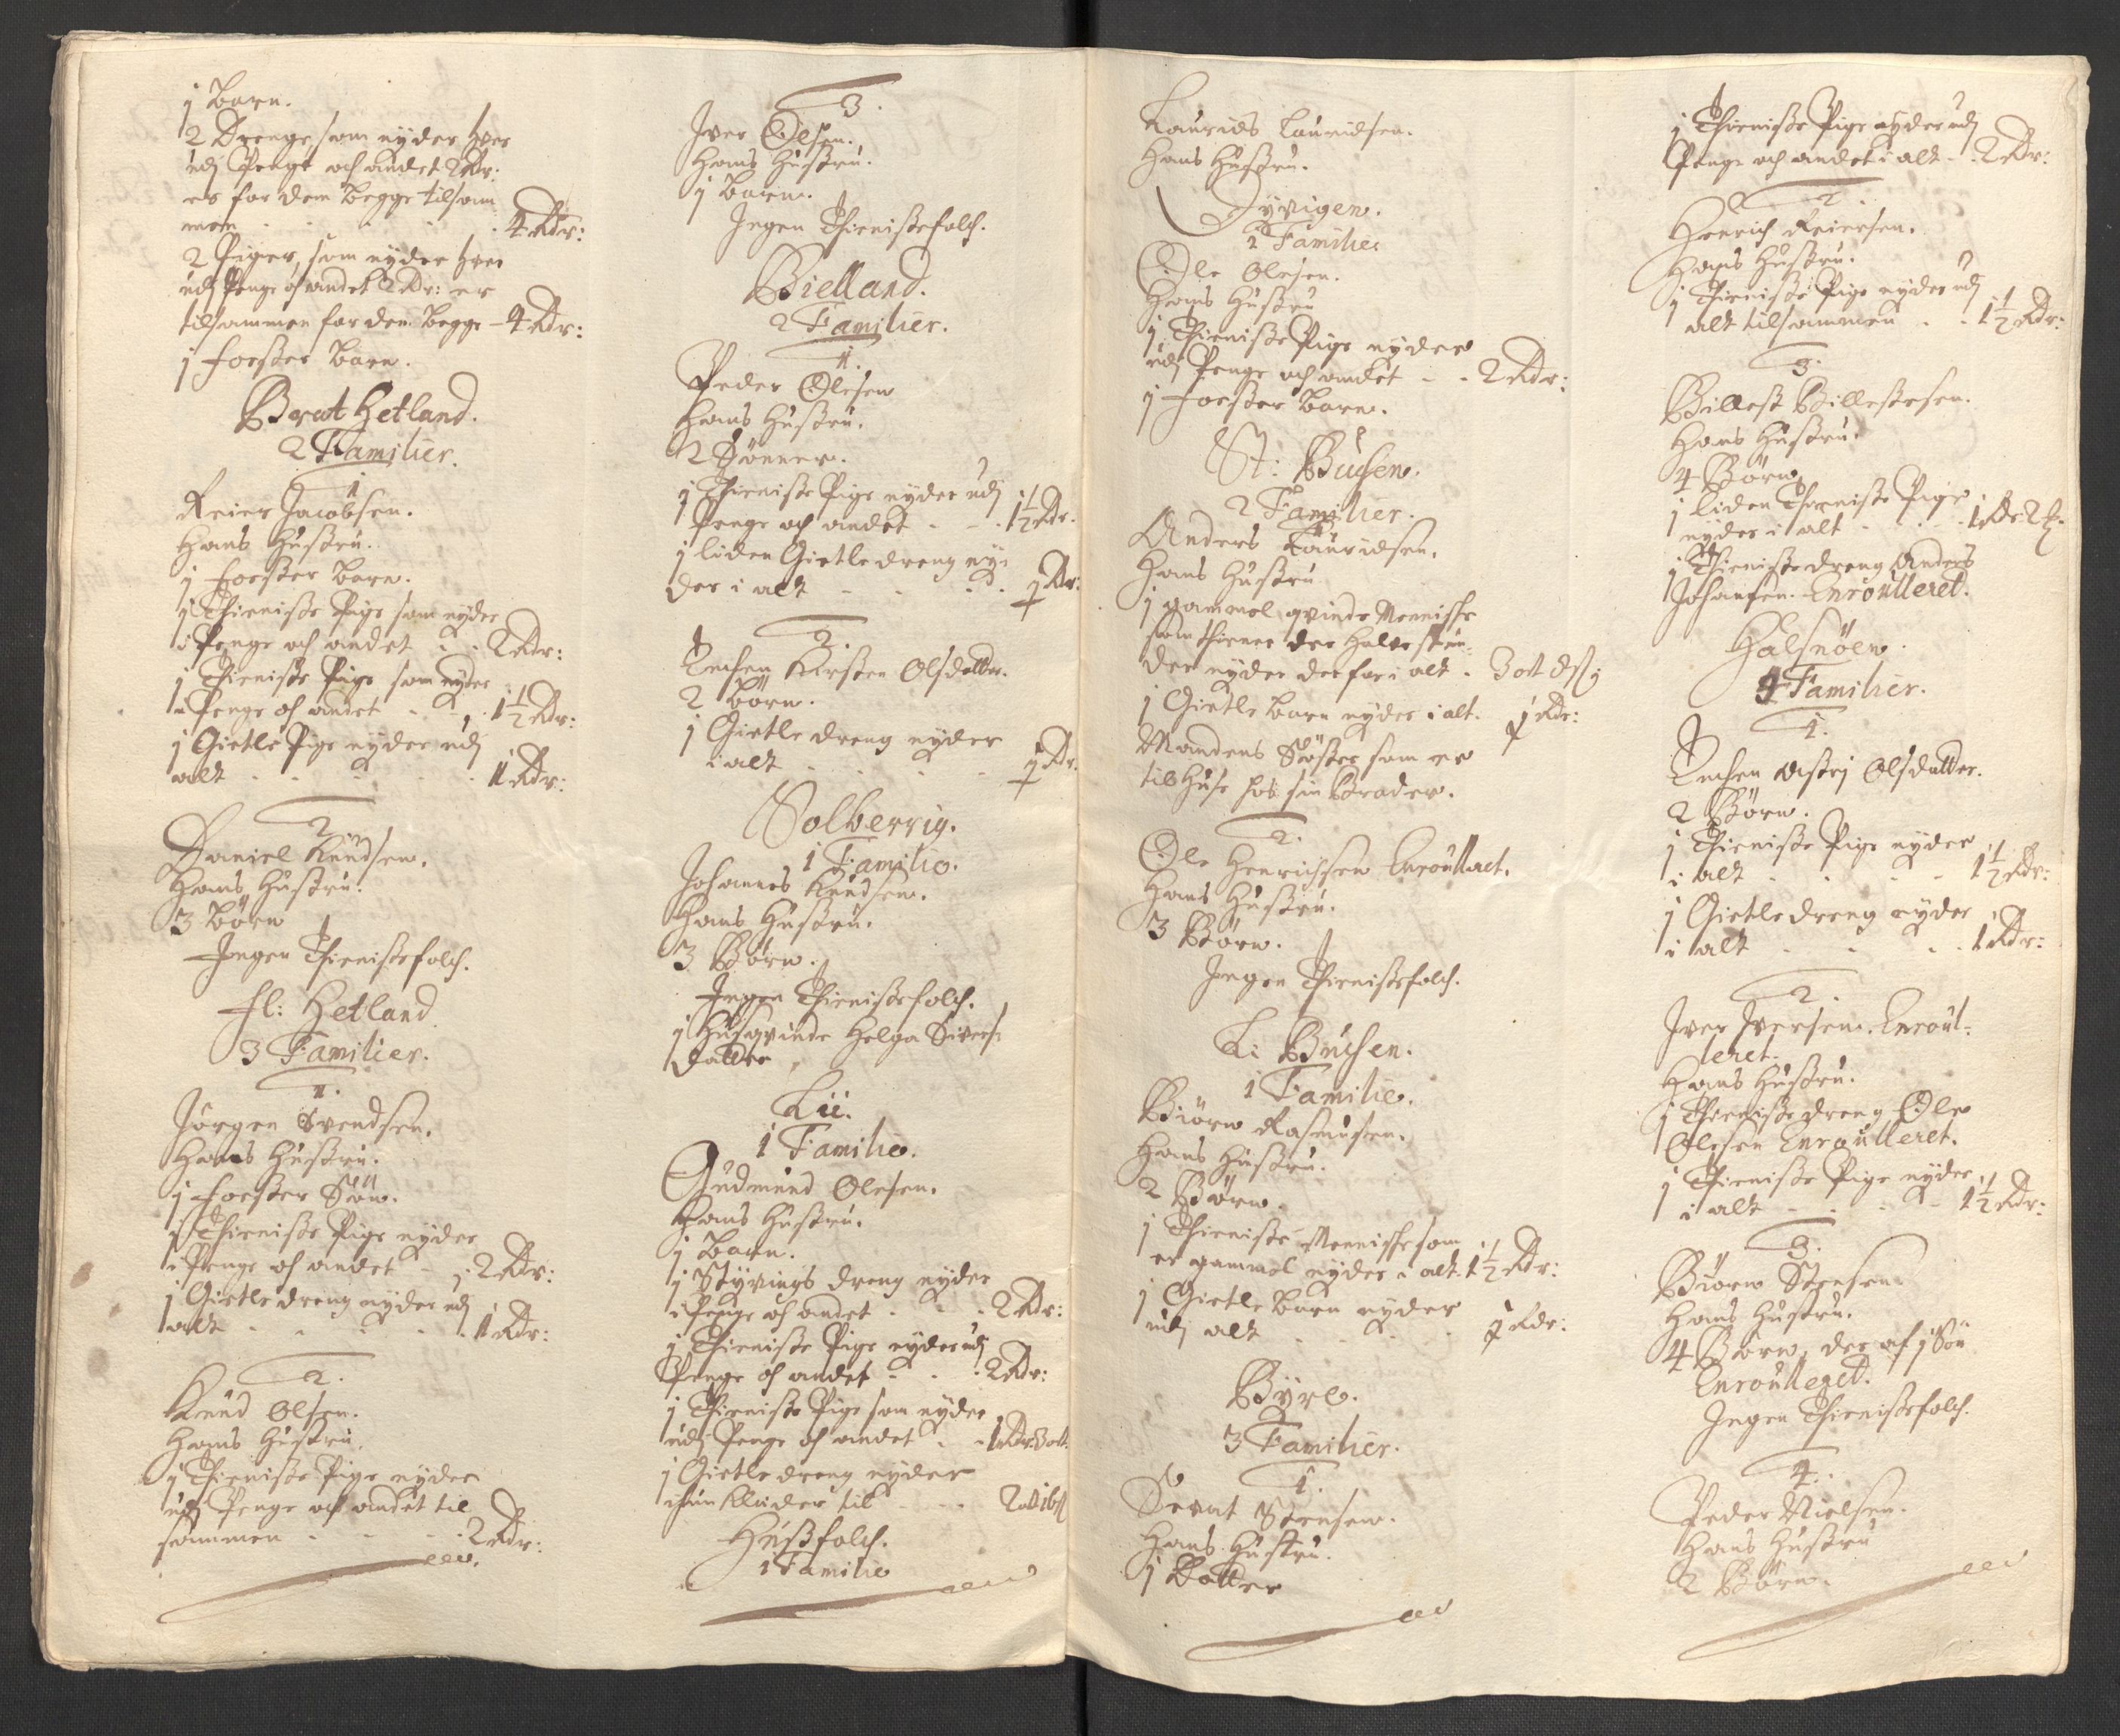 1 Barn.
2 Drenge, som nyder hver
udj Penge och andet 2 Rdr:
er for dem begge tilsam
men - - - 4 Rdr:
2 Piger, som nyder hver
udj Penge och andet 2 Rdr: er
tilsammen for dem begge - 4 Rdr:
1 foster Barn.
Brat Hetland.
2 Familier.
1.
Reier Jacobsen.
Hans Hustru.
1 foster Barn.
1 Thieniste Pige som nyder
i Penge och andet - - 2 Rdr:
1 Thieniste Pige som nyder
i Penge och andet - - 1½ Rdr:
1 Gietle Pige nyder udj
alt - - - - 1 Rdr:
2
Daniel Knudsen.
Hans Hustru.
3 Børn
Ingen Thienistefolch.
Fl: Hetland
3 Familier.
1.
Jørgen Svendsen.
Hans Hustru.
1 foster Søn.
1 Thieniste Pige nyder
i Penge och andet - - 2 Rdr:
1 Gietle dreng nyder udj
alt - - - - 1 Rdr:
2.
Knud Olsen.
Hans Hustru.
1 Thieniste Pige nyder
udj Penge och andet til
sammen - - - 2 Rdr:
3.
Iver Olsen.
Hans Hustru.
1 Barn.
Ingen Thienistefolch.
Bielland.
2 Familier.
1.
Peder Olesen
Hans Hustru.
2 Sønner.
1 Thieniste Pige nyder udj
Penge och andet - - 1½ Rdr.
1 liden Gietledreng ny:
der i alt - - - 1 Rdr:
2.
Enchen Kirsten Olsdatter.
2 Børn.
1 Gietledreng nyder
i alt - - - 1 Rdr.
Solberrig.
1 Familie.
Johannes Knudsen.
Hans Hustru.
3 Børn.
Ingen Thienistefolch.
1 Husqvinde Helga Sivers:
datter
Lii.
1 Familie.
Gudmund Olesen.
Hans Hustru.
1 Barn.
1 Styvings dreng nyder
i Penge och andet - - 2 Rdr:
1 Thieniste Pige nyder udj
Penge och andet - - 2 Rdr:
1 Thieniste Pige som nyder
udj Penge och andet - - 1 Rdr 3 ort.
1 Gietle dreng nyder
klæder til - - 2 ort 16 s
Husfolch.
1 Familie
Laurids Lauridsen.
Hans Hustru.
Dyvigen.
1 Familie
Ole Olesen.
Hans Hustru
1 Thieniste Pige nyder
udj Penge och andet - - 2 Rdr:
1 foster barn.
St: Buchen.
2 Familier.
1.
Anders Lauridsen.
Hans Hustru
1 gammel qvinde Menniske
som thiener der
der nyder derfor i alt - 3 ort
1 Gietle barn nyder i alt. 1 Rdr:
Mandens Søster som er
til Huse hos sin Broder.
2.
Ole Henrichsen Enroulleret.
Hans Hustru.
3 Børn.
Ingen Thienistefolch.
L: Buchen.
1 Familie.
Biørn Rasmusen.
Hans Hustru.
2 Børn.
1 Thieniste Menniske som
er gammel nyder i alt. 1½ Rdr:
1 Gietle barn nyder
udj alt - - - 1 Rdr:
Byre.
3 Familier.
1.
Sevat Stensen.
Hans Hustru.
1 Datter
1 Thieniste Pige nyder udj
Penge och andet i alt - - 2 Rdr:
2.
Henrich Reiersen.
Hans Hustru.
1 Thieniste Pige nyder udj
alt tilsammen - - 1½ Rdr:
3.
Billest Billestesen.
Hans Hustru.
4 Børn.
1 liden Thieniste Pige
nyder i alt - - - 1 Rdr 2
1 Thieniste dreng Anders
Johansen. Enroulleret.
Halsnøen.
4 Familier.
1.
Enchen Olsdatter.
2 Børn.
1 Thieniste Pige nyder
i alt - - - 1½ Rdr:
1 Gietledreng nyder
i alt - - - 1 Rdr:
2.
Iver Iversen. Enroul:
leret.
Hans Hustru.
1 Thieniste dreng Ole
Olesen Enroulleret.
1 Thieniste Pige nyder
i alt - - - 1½ Rdr:
3.
Biørn Stensen.
Hans Hustru.
4 Børn, der af 1 Søn
Enroulleret.
Ingen Thienistefolch.
4.
Peder Nielsen.
Hans Hustru
2 Børn.